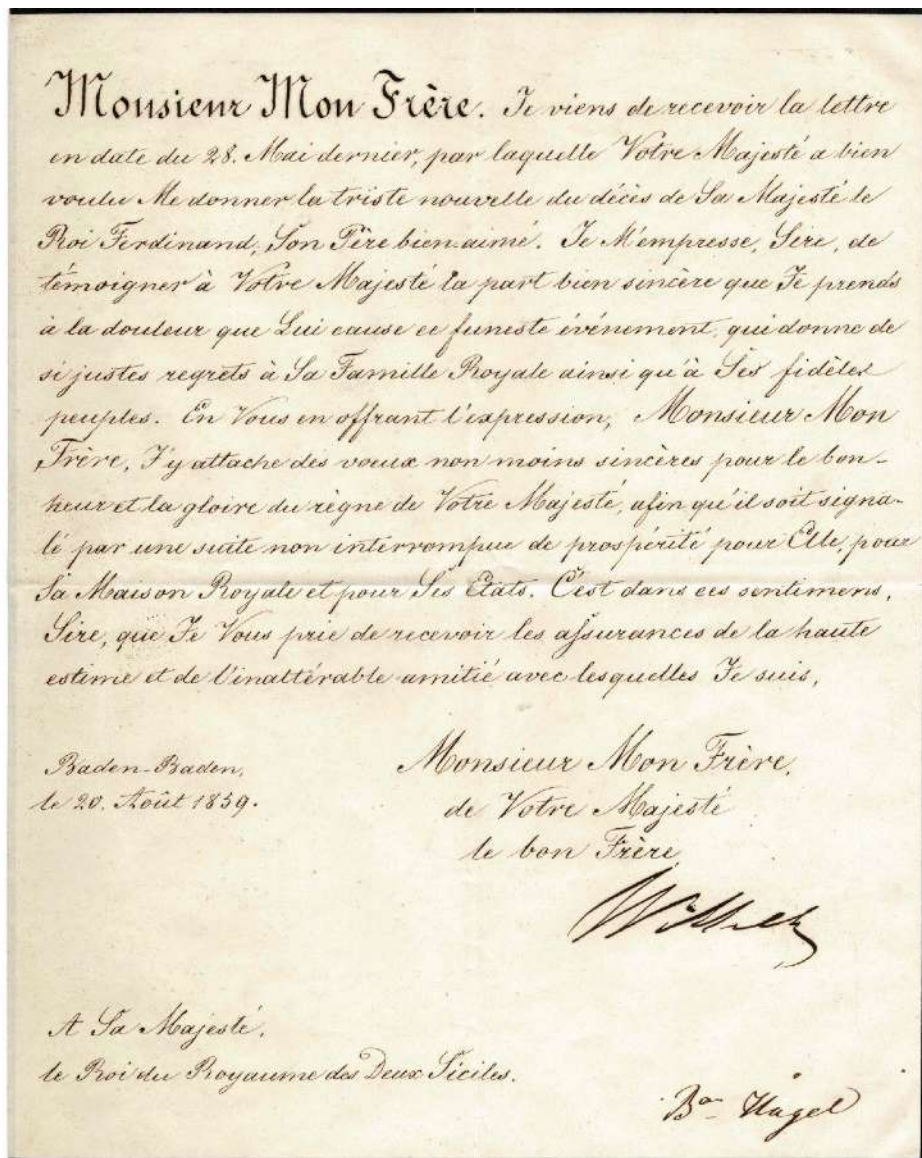 Monsieur Mon Frère. Je viens de recevoir la lettre
en date du 28. Mai dernier, par laquelle Votre Majesté a bien
voulu Me donner la triste nouvelle du décès de Sa Majesté le
Roi Ferdinand, Son Père bien-aimé. Je M'empresse, Sire, de
témoigner à Votre Majesté la part bien sincère que Je prends
à la douleur que Lui cause ce funeste événement, qui donne de
si justes regrets à Sa Famille Royale ainsi qu'à Ses fidèles
peuples. En Vous en offrant l'expression, Monsieur Mon
Frère, J'y attache des voeux non moins sincères pour le bon-
heur et la gloire du règne de Votre Majesté, afin qu'il soit signa-
lé par une suite non interrompue de prospérité pour Elle, pour
Sa Maison Royale et pour Ses Etats. C'est dans ces sentimens,
Sire, que Je Vous prie de recevoir les assurances de la haute
estime et de l'inaltérable amitié avec lesquelles Je suis,
Monsieur Mon Frère,
de Votre Majesté
le bon Frère
Baden-Baden,
le 20. Août 1859.
A Sa Majesté,
le Roi du Royaume des Deux Siciles.